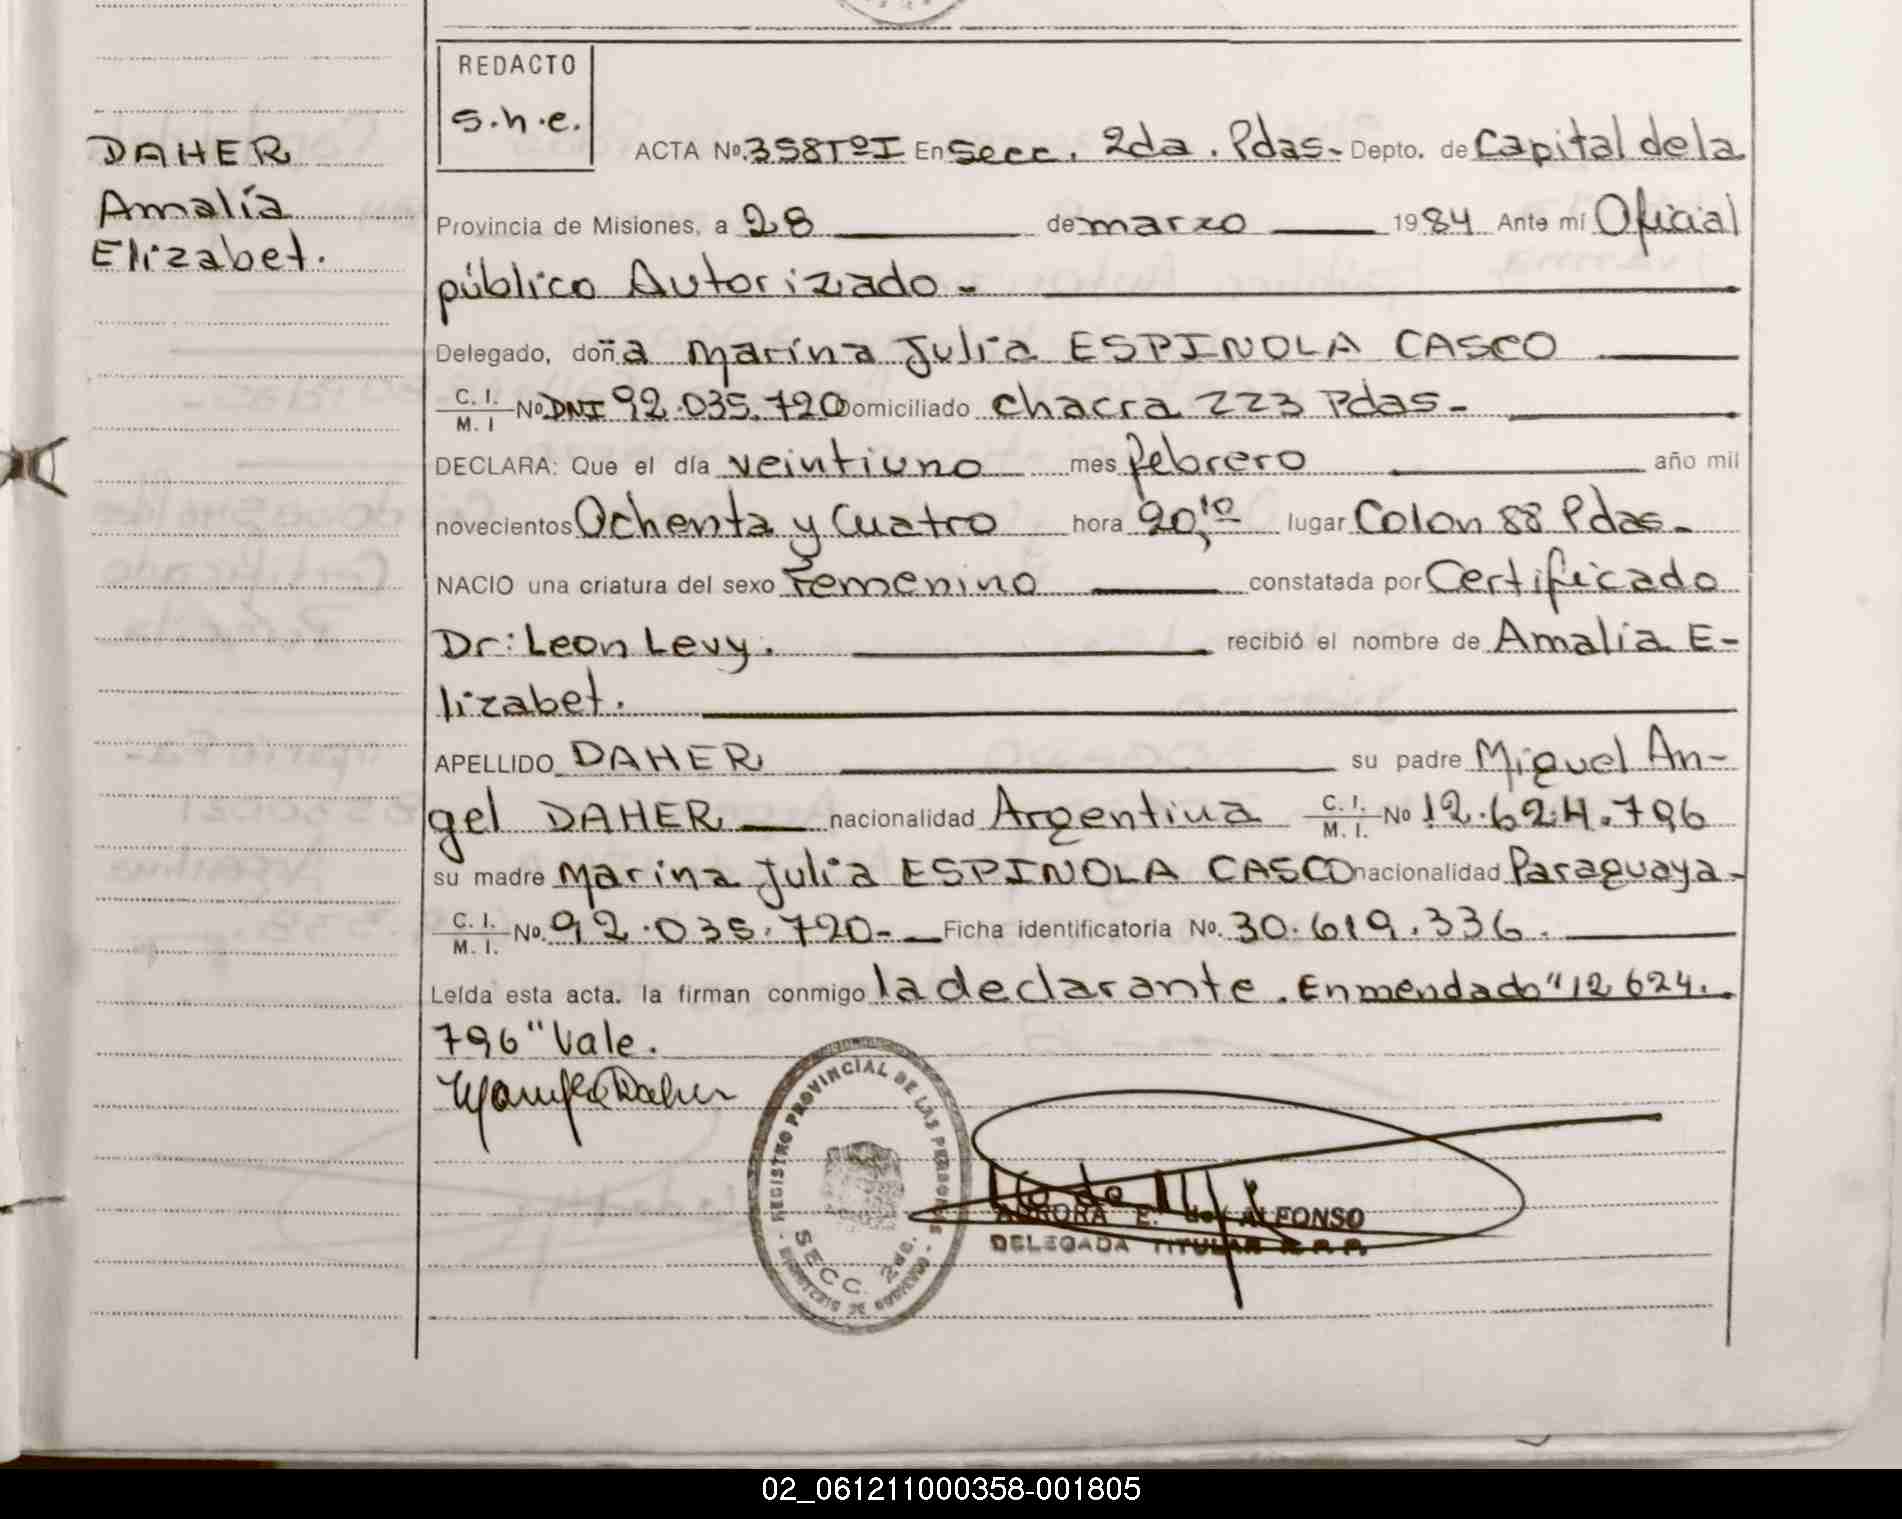 REDACTO
s.h.e.
DAHER
Amalía
Elizabet.
ACTA Nº 358TºI En Secc. 2da. Pdas- Depto. de Capital de la
Provincia de Misiones, a 28 de marzo 1984 Ante mí Oficial
público Autorizado -
Delegado, doña Marína Julia ESPINOLA CASCO
C. I. / M. I Nº DNI 92.035.720 Domiciliado chacra 223 Pdas-
DECLARA: Que el día veintiuno mes febrero año mil
novecientos Ochenta y Cuatro hora 20,10 lugar Colon 88 Pdas-
NACIO una criatura del sexo Femenino constatada por Certificado
Dr: Leon Levy. recibió el nombre de Amalia E-
lizabet.
APELLIDO DAHER su padre Miguel An-
gel DAHER nacionalidad Argentina C. I. / M. I. Nº 12.624.796
su madre Marina Julia ESPINOLA CASCO nacionalidad Paraguaya-
C. I. / M. I. Nº. 92.035.720- Ficha identificatoria Nº. 30.619.336.
Leída esta acta, la firman conmigo la declarante. Enmendado "12 624.
796" Vale.
REGISTRO PROVINCIAL DE LAS PERSONAS
SECC. 2da.
AURORA E. de ALFONSO
DELEGADA TITULAR R.P.P.
02_061211000358-001805